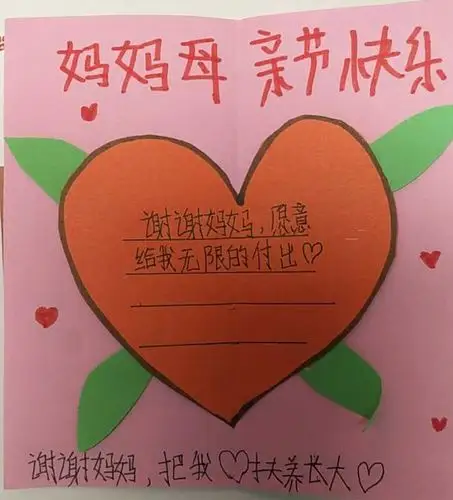 妈妈母亲节快乐
谢谢妈妈，愿意
给我无限的付出♡
谢谢妈妈，把我♡扶养长大♡